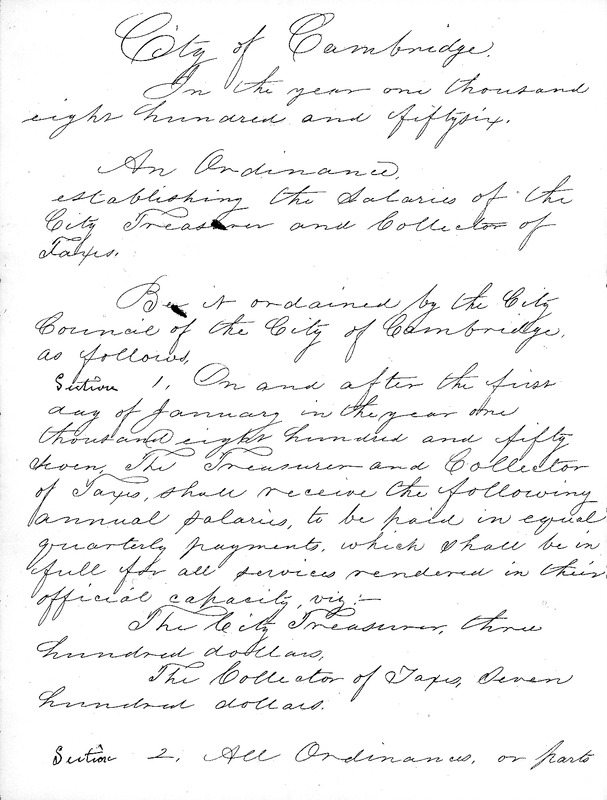 City of Cambridge.
In the year one thousand
eight hundred and fiftysix.
An Ordinance,
establishing the Salaries of the
City Treasurer and Collector of
Taxes.
Be it ordained by the City
Council of the City of Cambridge,
as follows,
Section 1. On and after the first
day of January in the year one
thousand eight hundred and fifty
seven, The Treasurer and Collector
of Taxes, shall receive the following
annual salaries, to be paid in equal
quarterly payments, which shall be in
full for all services rendered in their
official capacity, viz:—
The City Treasurer, three
hundred dollars,
The Collector of Taxes, Seven
hundred dollars.
Section 2. All Ordinances, or parts